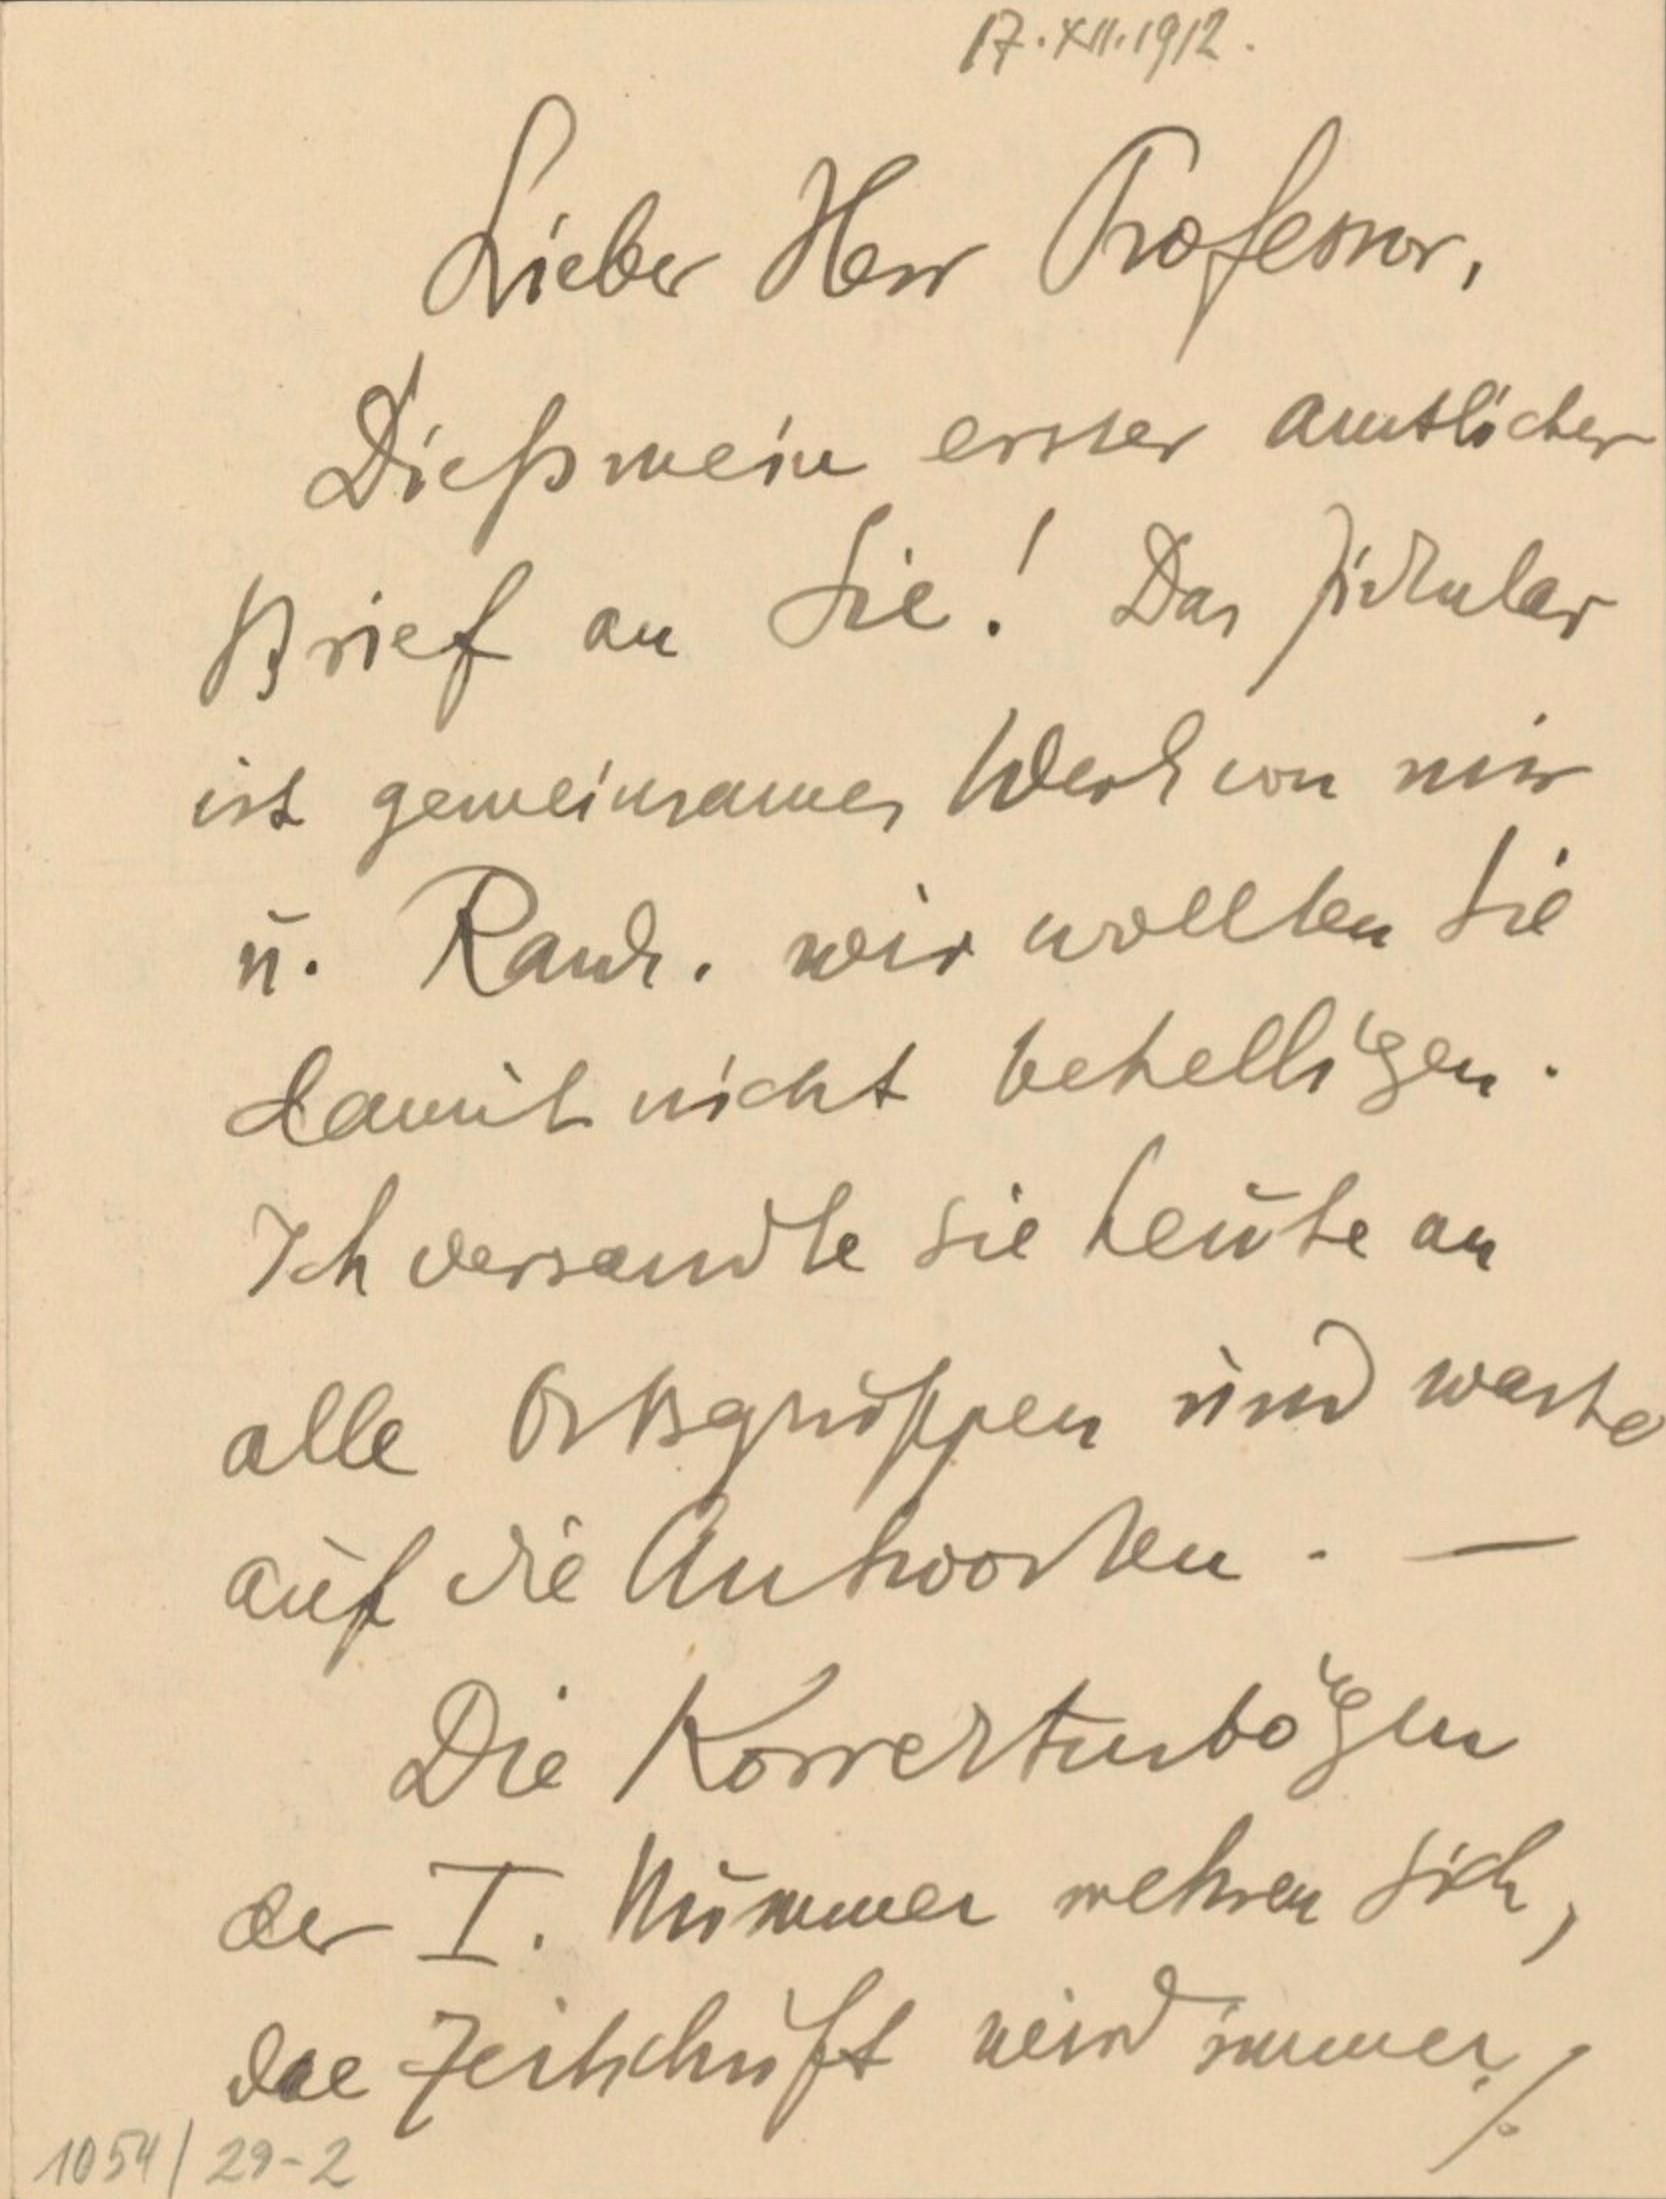 17.XII.1912.
Lieber Herr Professor,
Dieß mein erster amtlicher
Brief an Sie! Das Zirkular
ist gemeinsames Werk von mir
u. Rank. Wir wollten Sie
damit nicht behelligen.
Ich versandte sie heute an
alle Ortsgruppen und warte
auf die Antworten. —
Die Korrekturbögen
der I. Nummer mehren sich,
die Zeitschrift wird immer
1054/29-2